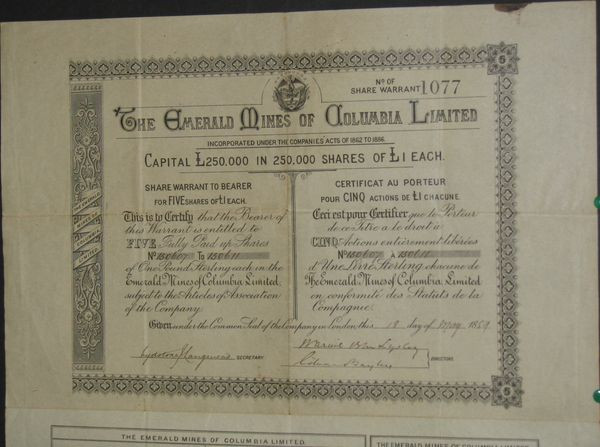 5
Nº OF
SHARE WARRANT 1077
THE EMERALD MINES OF COLUMBIA LIMITED
INCORPORATED UNDER THE COMPANIES ACTS OF 1862 TO 1886.
CAPITAL £250.000 IN 250.000 SHARES OF £1 EACH.
SHARE WARRANT TO BEARER
FOR FIVE SHARES OF £1 EACH.
This is to Certify that the Bearer of
this Warrant is entitled to
FIVE Fully Paid up Shares
Nº 130607 TO 130611
of One Pound Sterling each in the
Emerald Mines of Columbia, Limited,
subject to the Articles of Association
of the Company.
CERTIFICAT AU PORTEUR
POUR CINQ ACTIONS DE £1 CHACUNE.
Ceci est pour Certifier que le Porteur
de ce Titre a le droit à
CINQ Actions entièrement libérées
Nº 130607 À 130611
d'Une Livre Sterling chacune de
The Emerald Mines of Columbia, Limited
en conformité des Statuts de la
Compagnie.
Given under the Common Seal of the Company in London, this 18 day of May 1889.
SECRETARY
DIRECTORS
5
5
THE EMERALD MINES OF COLUMBIA LIMITED.
THE EMERALD MINES OF COLUMBIA LIMITED